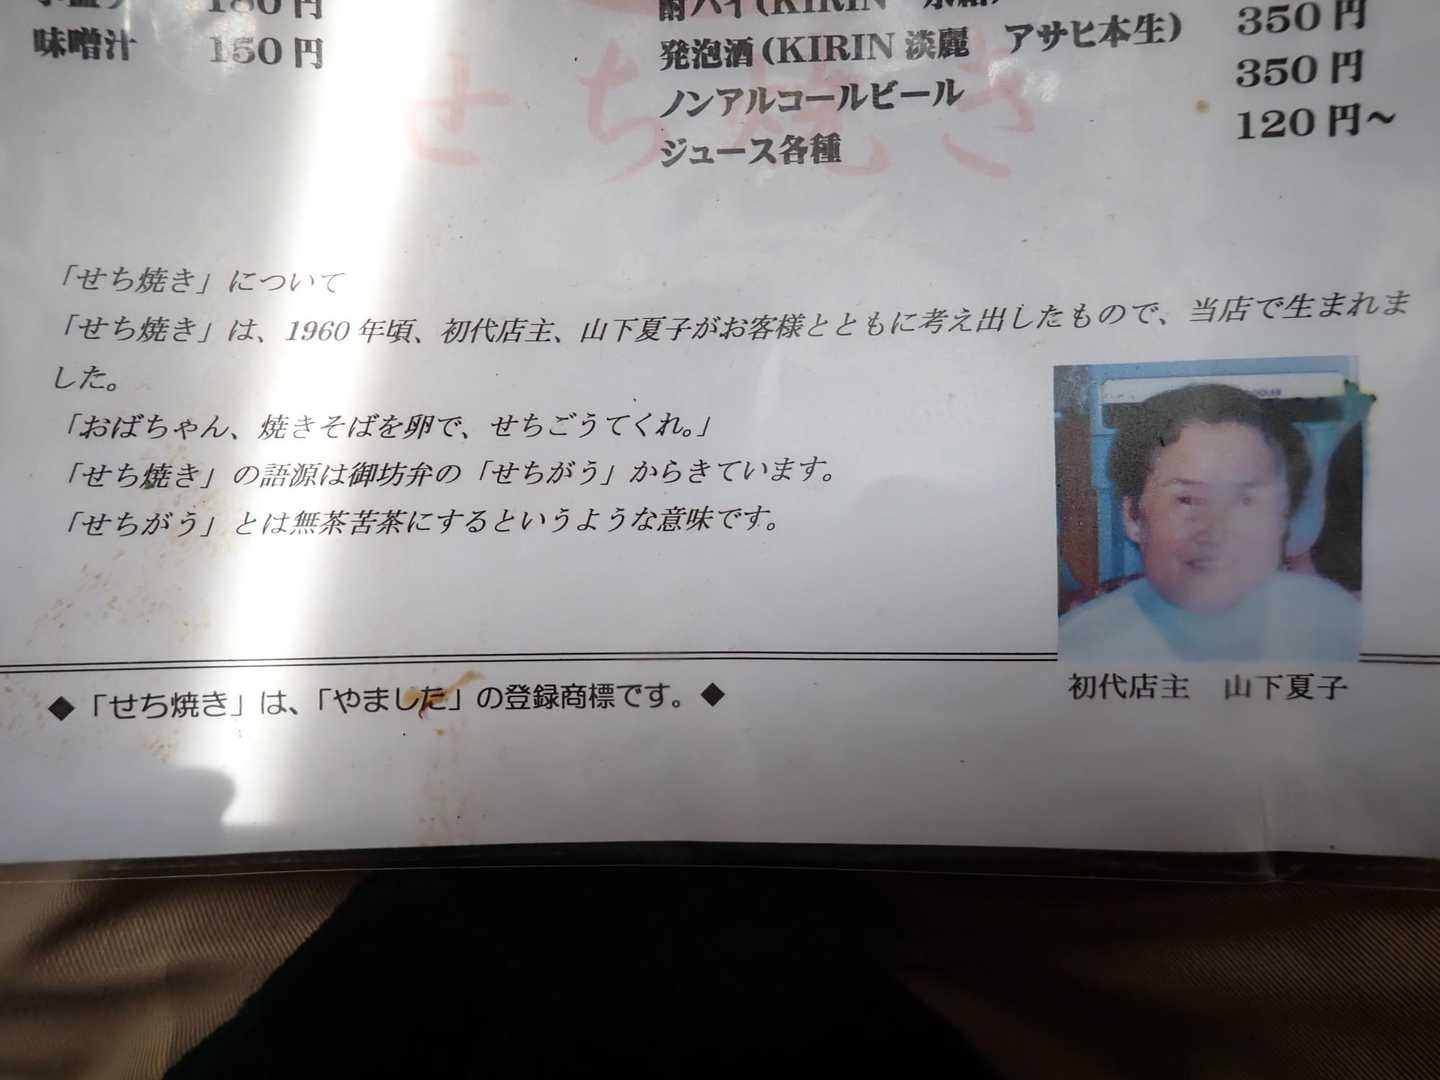 180円
味噌汁 150円
酎ハイ(KIRIN 氷結)
発泡酒(KIRIN 淡麗 アサヒ本生) 350円
ノンアルコールビール 350円
ジュース各種 120円～
せち焼き
「せち焼き」について
「せち焼き」は、1960年頃、初代店主、山下夏子がお客様とともに考え出したもので、当店で生まれま
した。
「おばちゃん、焼きそばを卵で、せちごうてくれ。」
「せち焼き」の語源は御坊弁の「せちがう」からきています。
「せちがう」とは無茶苦茶にするというような意味です。
初代店主 山下夏子
◆「せち焼き」は、「やました」の登録商標です。◆